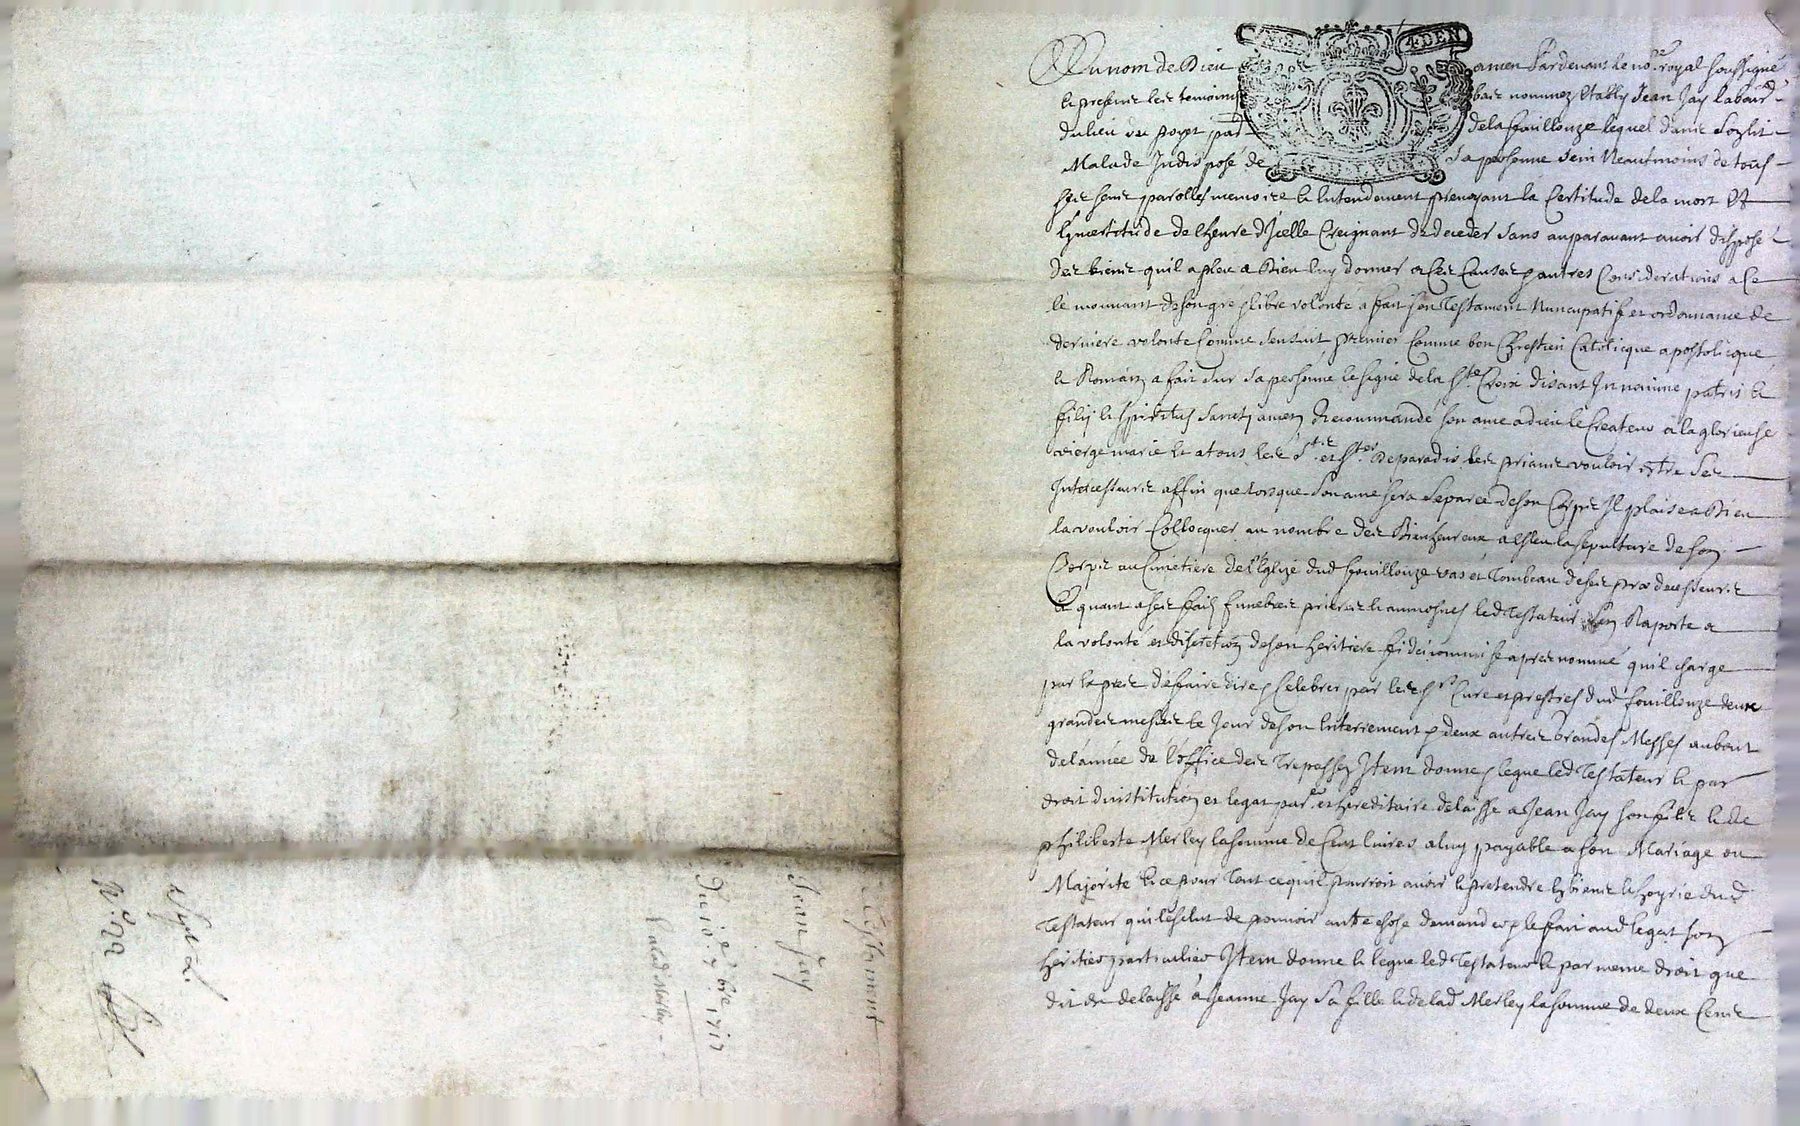 4 DEN
Au nom de Dieu amen Pardevant le no.re royal soussigné
et presens les temoins bas nommez estably Jean Jay labour.
du lieu du poyet par. de la ffouillouze lequel dans son lit
Malade Indisposé de sa personne sein Neantmoins de tous
ses sens parolles memoire et Entendement prevoyant la Certitude de la mort Et
lyncertitude de lheure dycelle Creignant de deceder sans auparavant avoir disposé
des biens quil a pleu a Dieu luy donner a ces Causes et autres Considerations a ce
le mouvant de son gré et libre volonté a fait son Testament Nuncupatif et ordonnance de
derniere volonté Comme sensuit premier Comme bon Chrestien Catolicque apostolicque
et Romain a fait sur sa personne le signe de la S.te Croix disant In nomine patris et
filij et spiritus sancty amen Recommandé son ame a dieu le Createur a la glorieuse
vierge marie et a tous les S.ts et S.tes de paradis les priant vouloir estre ses
Intercesseurs affin que lorsque son ame sera separée de son Corps Il plaise a Dieu
la vouloir Collocquer au nombre des Bienheureux a esleu la sepulture de son
Corps au Cimetiere de l'Eglize dud ffouillouze vas et Tombeau de ses predecesseurs
Et quant a ses frais funebres prieres et aumosnes led Testateur sen Raporte a
la volonté et discretion de son heritiere fideicommise apres nommé quil charge
par le pres. de faire dire et Celebrer par les S.rs Curé et prestres dud fouillouze deux
grandes messes le Jour de son Enterrement et deux autres Grandes Messes au bout
de lannée de l'office des Trepassez Item donne et legue led Testateur et par
droit dinstitution et legat par.er et hereditaire delaisse a Jean Jay son filz et de
philiberte Merley la somme de Cent livres a luy payable a son Mariage ou
Majorité et ce pour Tout ce quil pourroit avoir et pretendre Es biens et hoyrie dud
Testateur quil esclut de pouvoir autre chose demander et le fait aud legat son
heritier particulier Item donne et legue led Testateur et par meme droit que
dit est delaisse a Jeanne Jay sa fille et de lad Merley la somme de deux Cens
Testament
Jean Jay
Du 10.e 7bre 1717
a lad Merley